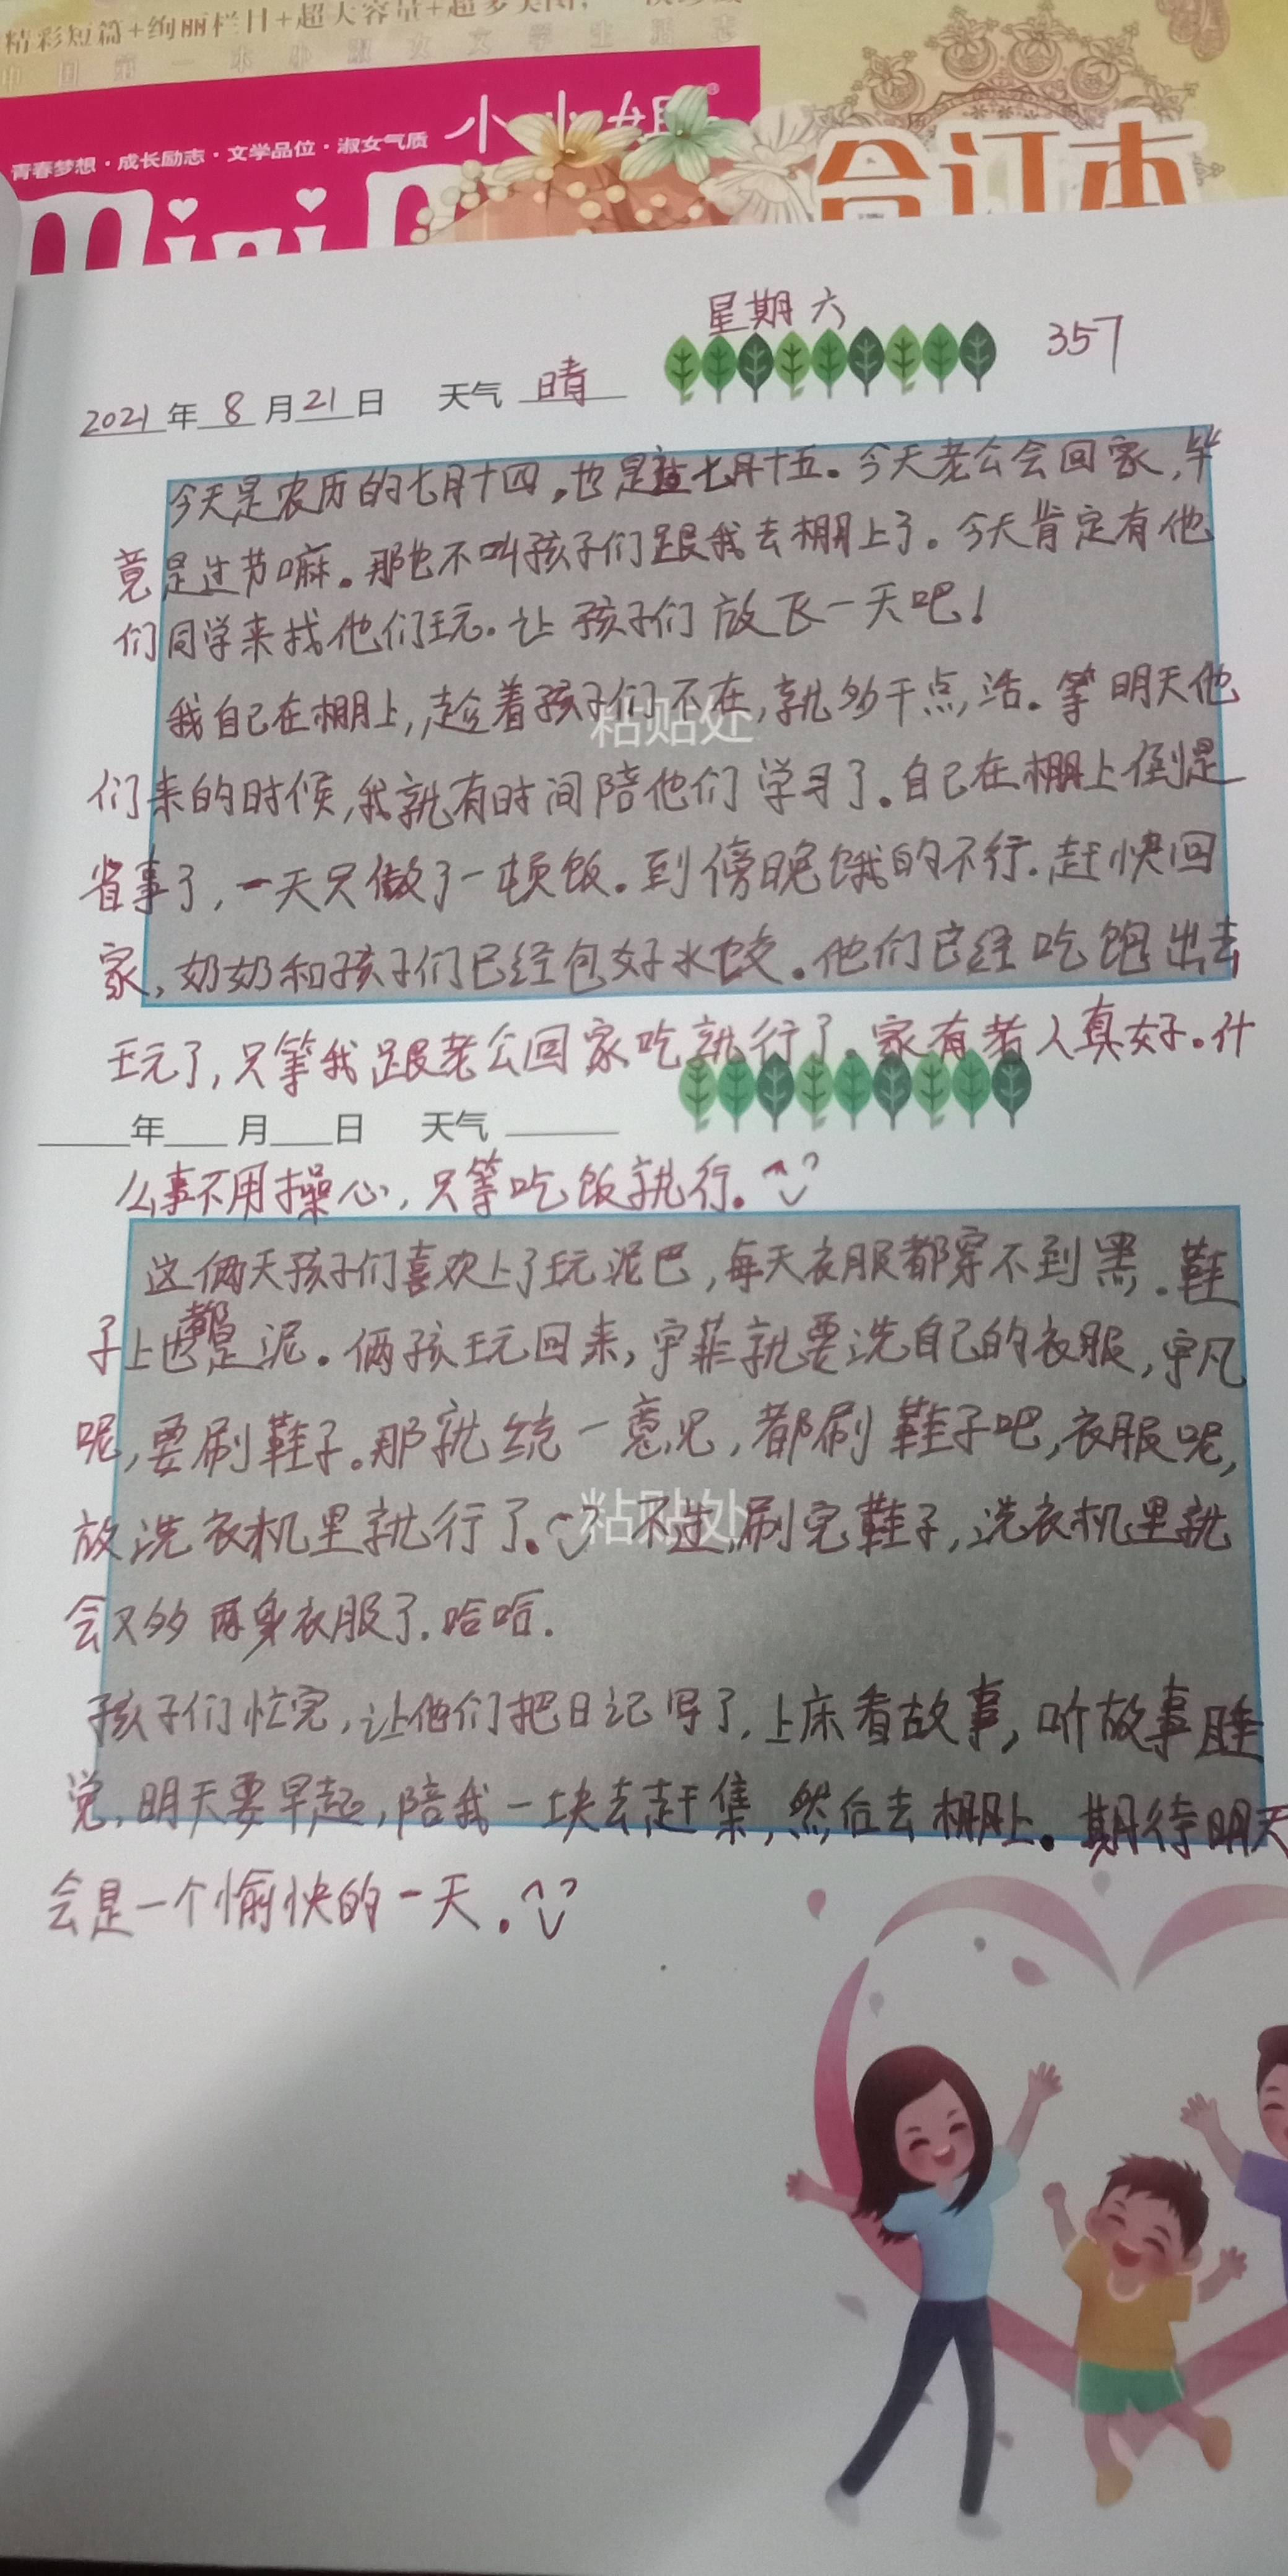 精彩短篇+绚丽栏目+超大容量+超多美图
中国第一本小淑女文学生活志
青春梦想·成长励志·文学品位·淑女气质
小小姐
Mini
合订本
星期六
357
2021年8月21日 天气 晴
今天是农历的七月十四，也是过七月十五。今天老公会回家，毕
竟是过节嘛。那也不叫孩子们跟我去棚上了。今天肯定有他
们同学来找他们玩。让孩子们放飞一天吧！
我自己在棚上，趁着孩子们不在，就多干点活。等明天他
粘贴处
们来的时候，我就有时间陪他们学习了。自己在棚上倒是
省事了，一天只做了一顿饭。到傍晚饿的不行.赶快回
家，奶奶和孩子们已经包好水饺。他们已经吃饱出去
玩了，只等我跟老公回家吃就行了.家有老人真好.什
年 月 日 天气
么事不用操心，只等吃饭就行。
这俩天孩子们喜欢上了玩泥巴，每天衣服都穿不到黑.鞋
子上也都是泥。俩孩玩回来，宇菲就要洗自己的衣服，宇凡
呢，要刷鞋子。那就统一意见，都刷鞋子吧，衣服呢，
放洗衣机里就行了。不过，刷完鞋子，洗衣机里就
粘贴处
会又多两身衣服了.哈哈.
孩子们忙完，让他们把日记写了.上床看故事，听故事睡
觉.明天要早起，陪我一块去赶集，然后去棚上。期待明天
会是一个愉快的一天.